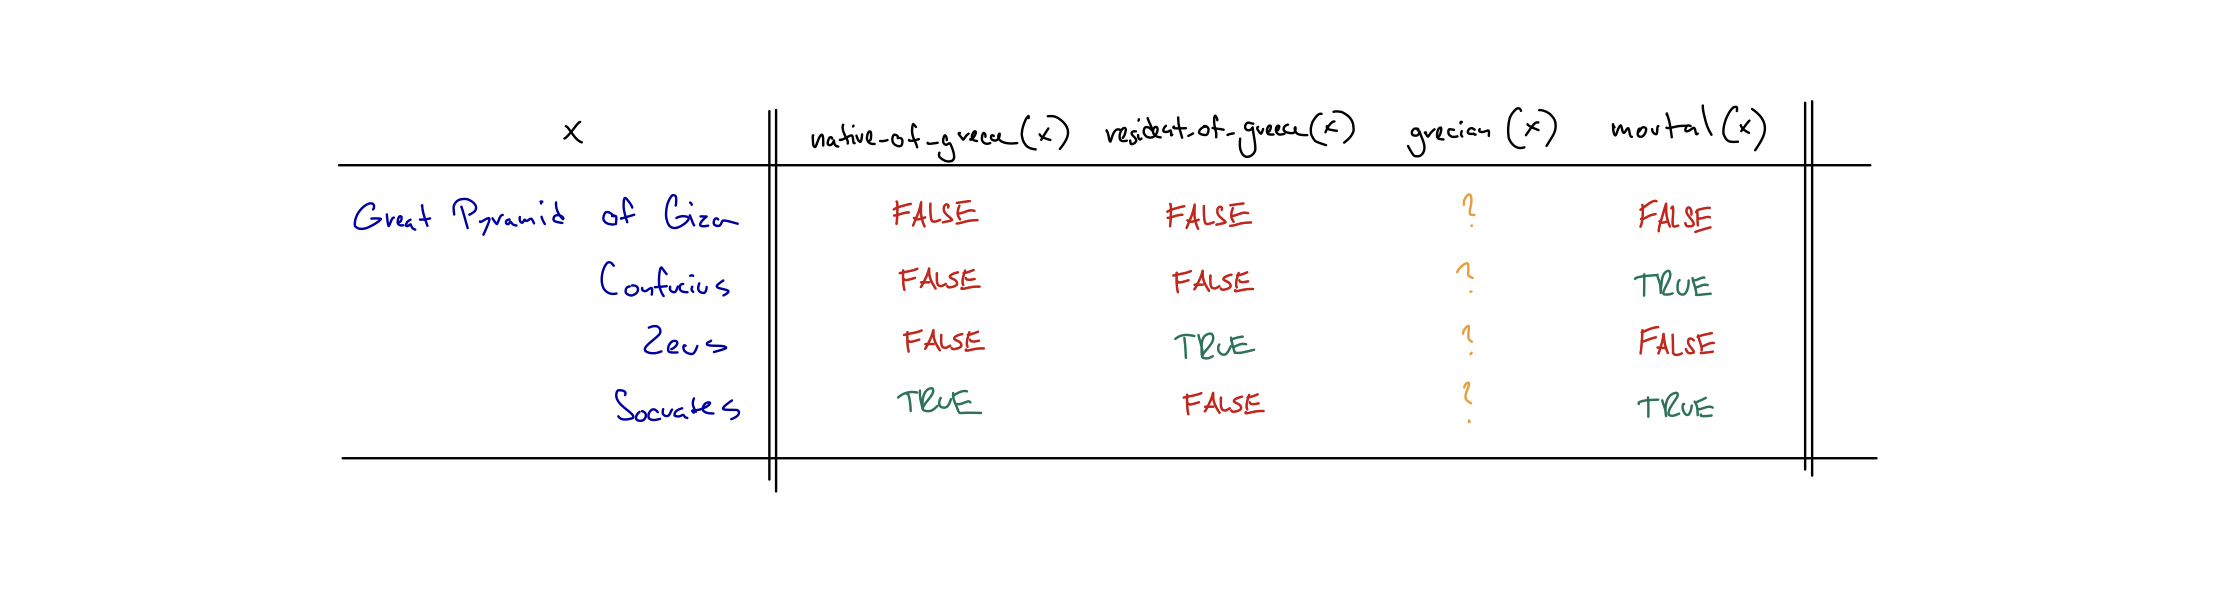 x native-of-greece(x) resident-of-greece(x) grecian(x) mortal(x)
Great Pyramid of Giza FALSE FALSE ? FALSE
Confucius FALSE FALSE ? TRUE
Zeus FALSE TRUE ? FALSE
Socrates TRUE FALSE ? TRUE